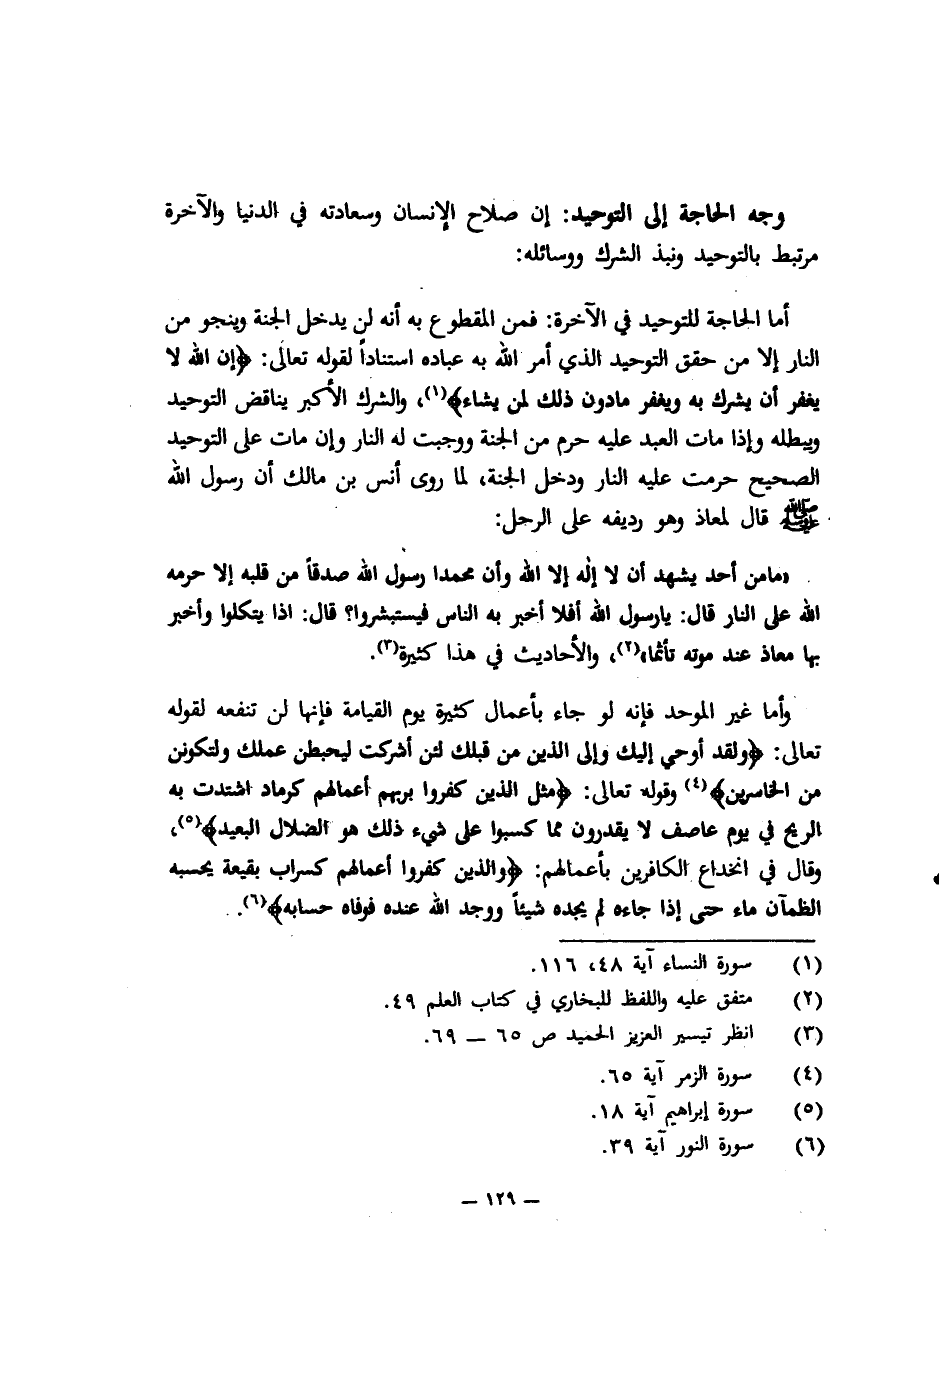 وجه الحاجة إلى التوحيد: إن صلاح الإنسان وسعادته في الدنيا والآخرة
مرتبط بالتوحيد ونبذ الشرك ووسائله:
أما الحاجة للتوحيد في الآخرة: فمن المقطوع به أنه لن يدخل الجنة وينجو من
النار إلا من حقق التوحيد الذي أمر الله به عباده استناداً لقوله تعالى: ﴿إن الله لا
يغفر أن يشرك به ويغفر مادون ذلك لمن يشاء﴾(١)، والشرك الأكبر يناقض التوحيد
ويبطله وإذا مات العبد عليه حرم من الجنة ووجبت له النار وإن مات على التوحيد
الصحيح حرمت عليه النار ودخل الجنة، لما روى أنس بن مالك أن رسول الله
ﷺ قال لمعاذ وهو رديفه على الرحل:
«مامن أحد يشهد أن لا إله إلا الله وأن محمدا رسول الله صدقاً من قلبه إلا حرمه
الله على النار قال: يارسول الله أفلا أخبر به الناس فيستبشروا؟ قال: اذا يتكلوا وأخبر
بها معاذ عند موته تأثما»(٢)، والأحاديث في هذا كثيرة(٣).
وأما غير الموحد فإنه لو جاء بأعمال كثيرة يوم القيامة فإنها لن تنفعه لقوله
تعالى: ﴿ولقد أوحي إليك وإلى الذين من قبلك لئن أشركت ليحبطن عملك ولتكونن
من الخاسرين﴾(٤) وقوله تعالى: ﴿مثل الذين كفروا بربهم أعمالهم كرماد اشتدت به
الريح في يوم عاصف لا يقدرون مما كسبوا على شيء ذلك هو الضلال البعيد﴾(٥)،
وقال في انخداع الكافرين بأعمالهم: ﴿والذين كفروا أعمالهم كسراب بقيعة يحسبه
الظمآن ماء حتى إذا جاءه لم يجده شيئاً ووجد الله عنده فوفاه حسابه﴾(٦).
(١) سورة النساء آية ٤٨، ١١٦.
(٢) متفق عليه واللفظ للبخاري في كتاب العلم ٤٩.
(٣) انظر تيسير العزيز الحميد ص ٦٥ — ٦٩.
(٤) سورة الزمر آية ٦٥.
(٥) سورة إبراهيم آية ١٨.
(٦) سورة النور آية ٣٩.
— ١٢٩ —